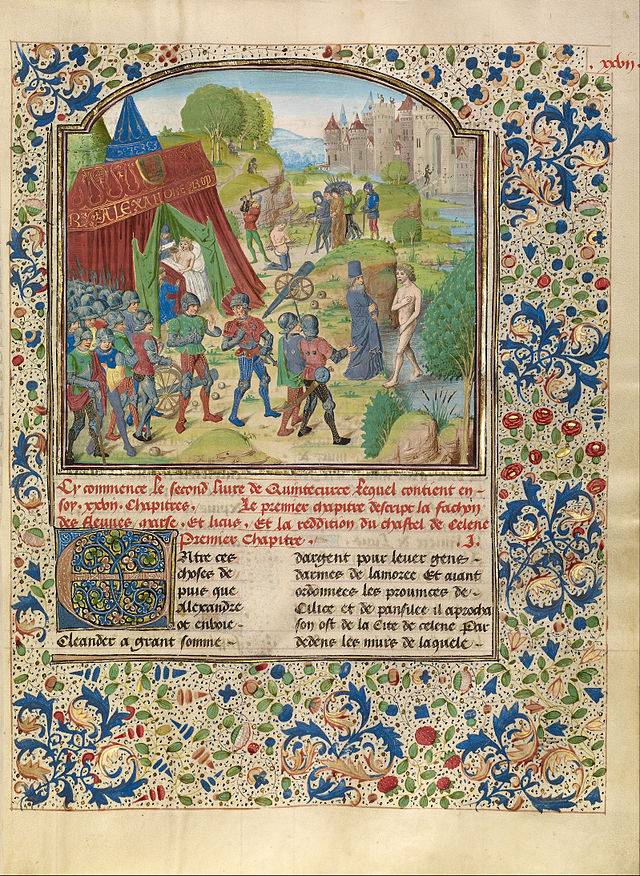 xxvii
ALEXANDRE
Cy commence le second liure de Quintecurce lequel contient en-
soy .xxvii. Chapitres. Le premier chapitre descript la fachon
des fleuues marse. Et licus. Et la reddition du chastel de Celene
Premier Chapitre. .I.
ENtre ces
choses de
puis que
Alexandre
ot enuoie
Cleander a grant somme
dargent pour leuer gens
darmes de lamoree Et auant
ordonnees les prouinces de
Cilice et de panfilee il aprocha
son ost de la Cite de celene Par
dedens les murs de laquele